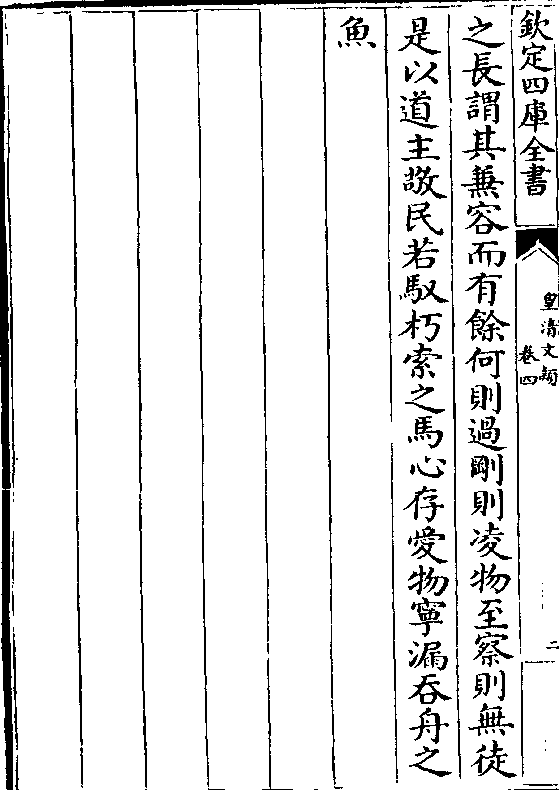 欽定四庫全書
皇清文穎
卷四
二
之長謂其兼容而有餘何則過剛則凌物至察則無徒
是以道主敬民若馭朽索之馬心存愛物寧漏吞舟之
魚